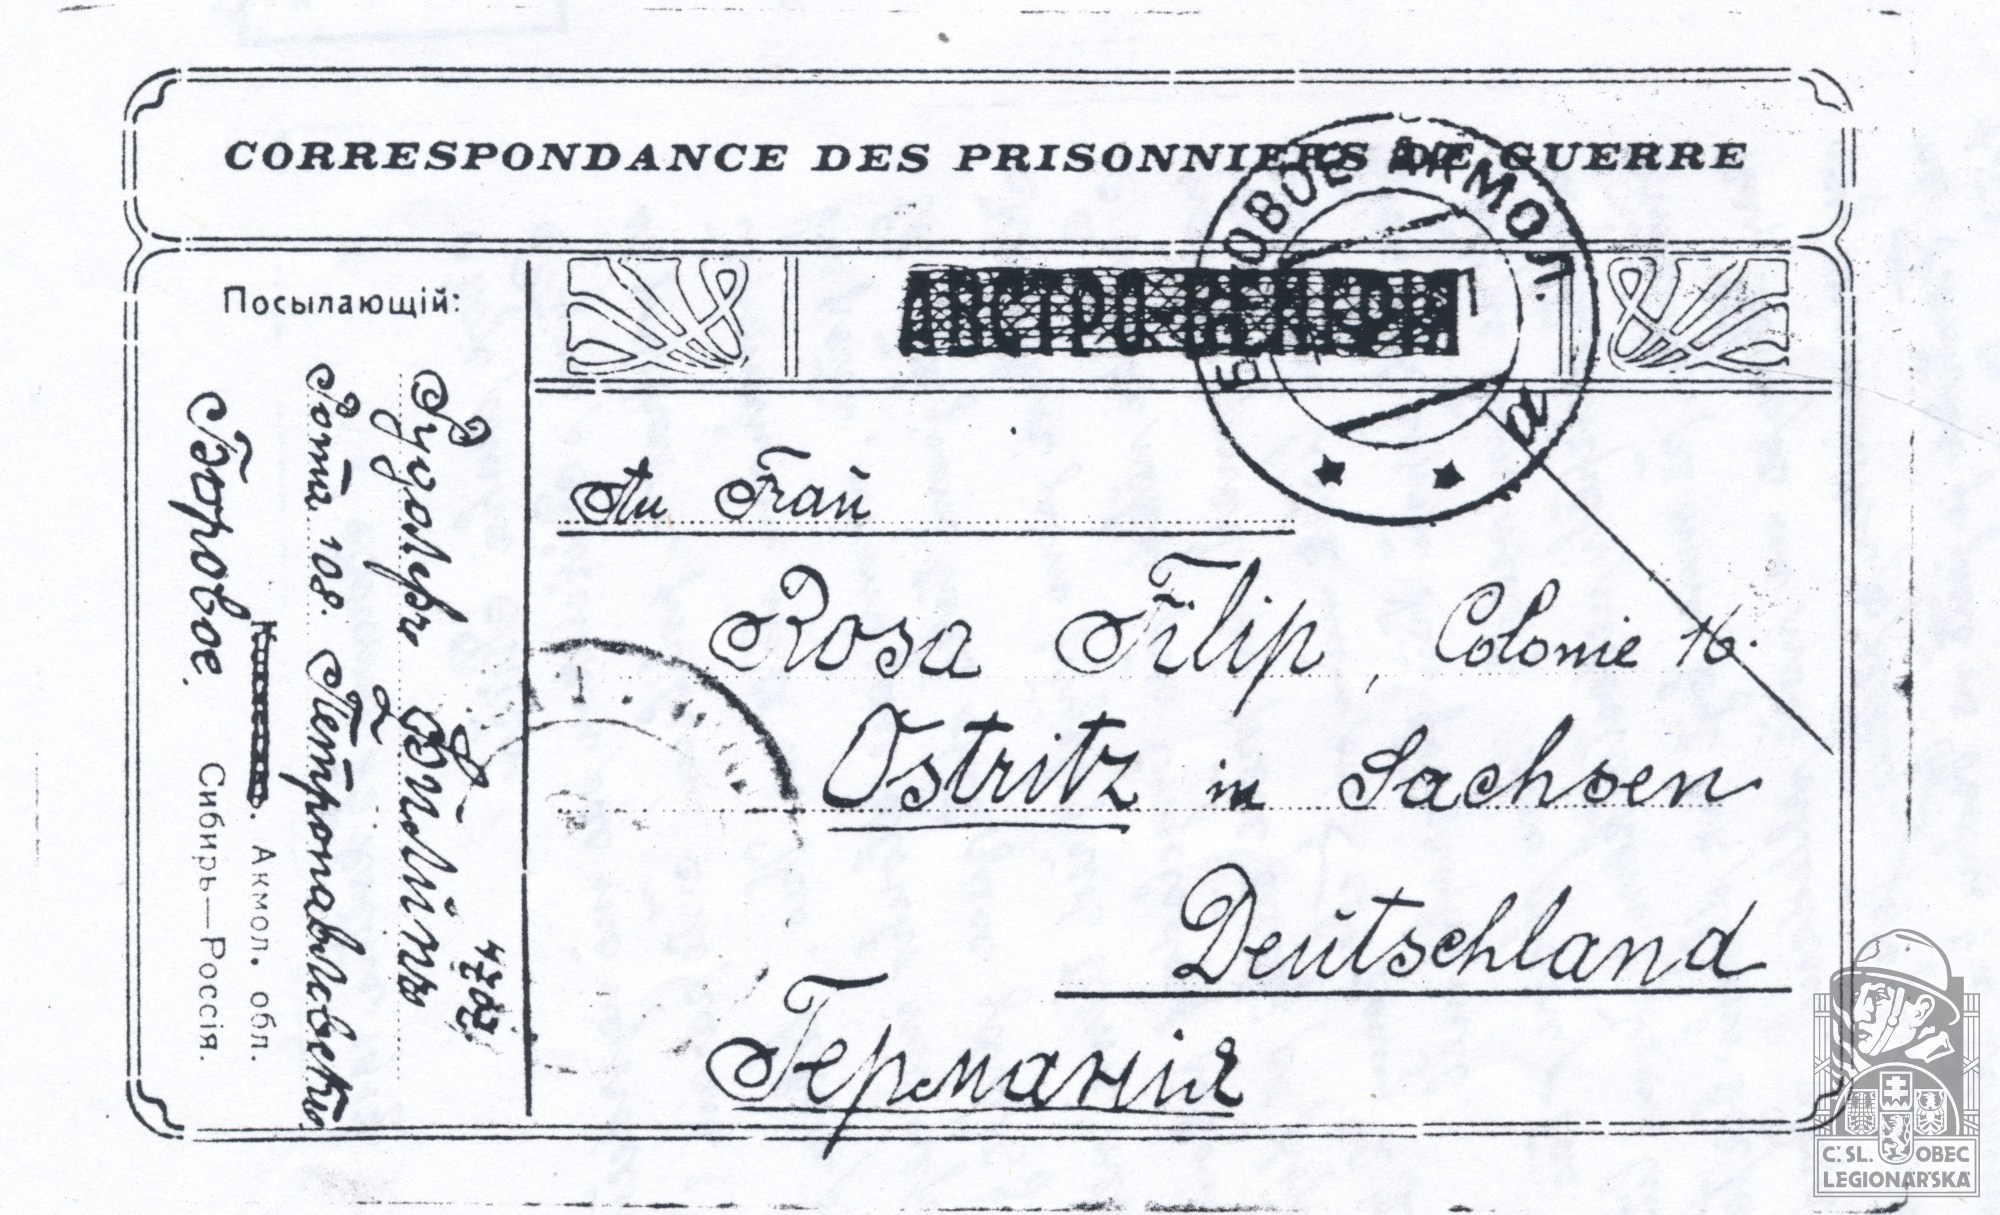 CORRESPONDANCE DES PRISONNIERS DE GUERRE
БОРОВОЕ АКМОЛ. а
АВСТРО-ВЕНГРІЯ
Посылающій:
Рудольфъ
Рота 108. Петропавловскъ
Акмол. обл.
Боровое. Сибирь—Россія.
An Frau
Rosa Filip, Colonie 16.
Ostritz in Sachsen
Deutschland
Германія
Č. SL. OBEC
LEGIONÁŘSKÁ